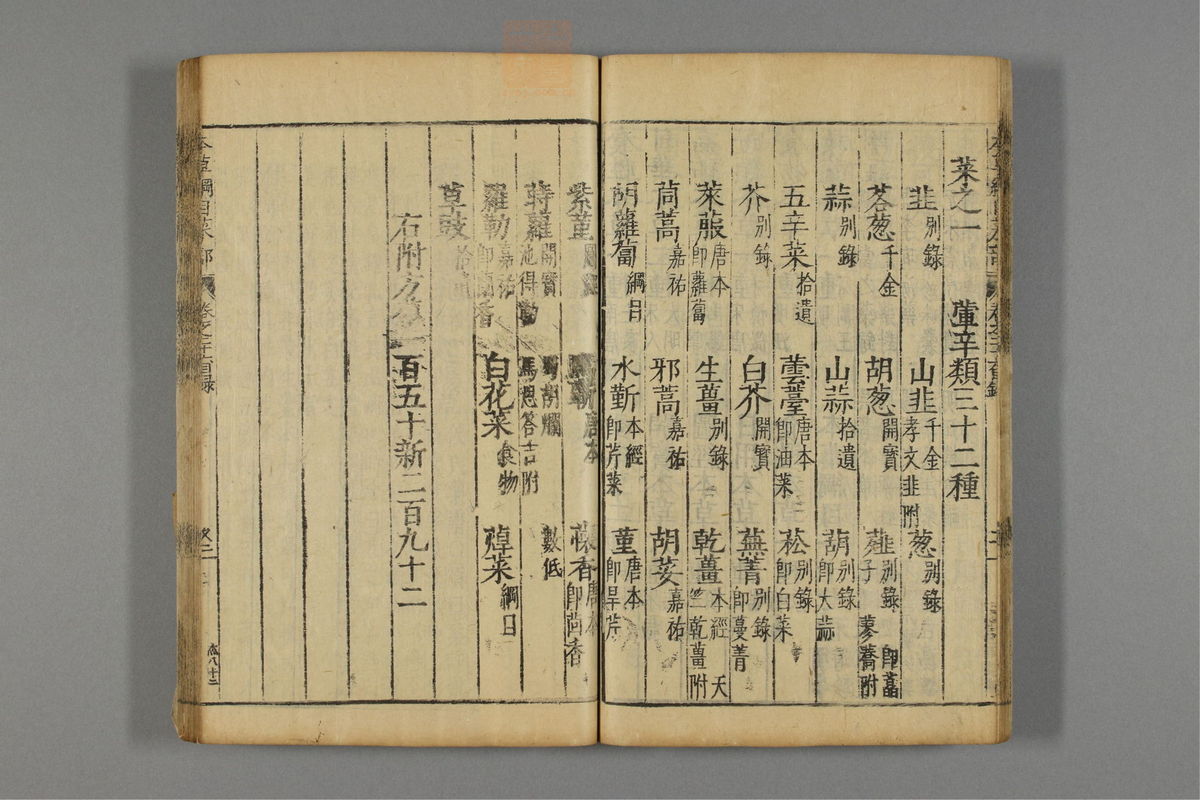 菜之一 葷辛類三十二種
韭別錄 山韭千金孝文韭附 葱別錄
茖葱千金 胡葱開寶 薤別錄即藠子蓼蕎附
蒜別錄 山蒜拾遺 葫別錄即大蒜
五辛菜拾遺 蕓薹唐本即油菜 菘別錄即白菜
芥別錄 白芥開寶 蕪菁別錄即蔓菁
萊菔唐本即蘿蔔 生薑別錄 乾薑本經天竺乾薑附
茼蒿嘉祐 邪蒿嘉祐 胡荽嘉祐
胡蘿蔔綱目 水斳本經即芹菜 菫唐本即旱芹
紫菫 唐本 蘹香唐本即茴香
蒔蘿開寶池得勒 蜀胡爛 數低 馬思荅吉附
羅勒嘉祐即蘭香 白花菜食物 蔊菜綱目
草豉拾遺
右附方舊一百五十新二百九十二
本草綱目菜部 卷之二十六目錄